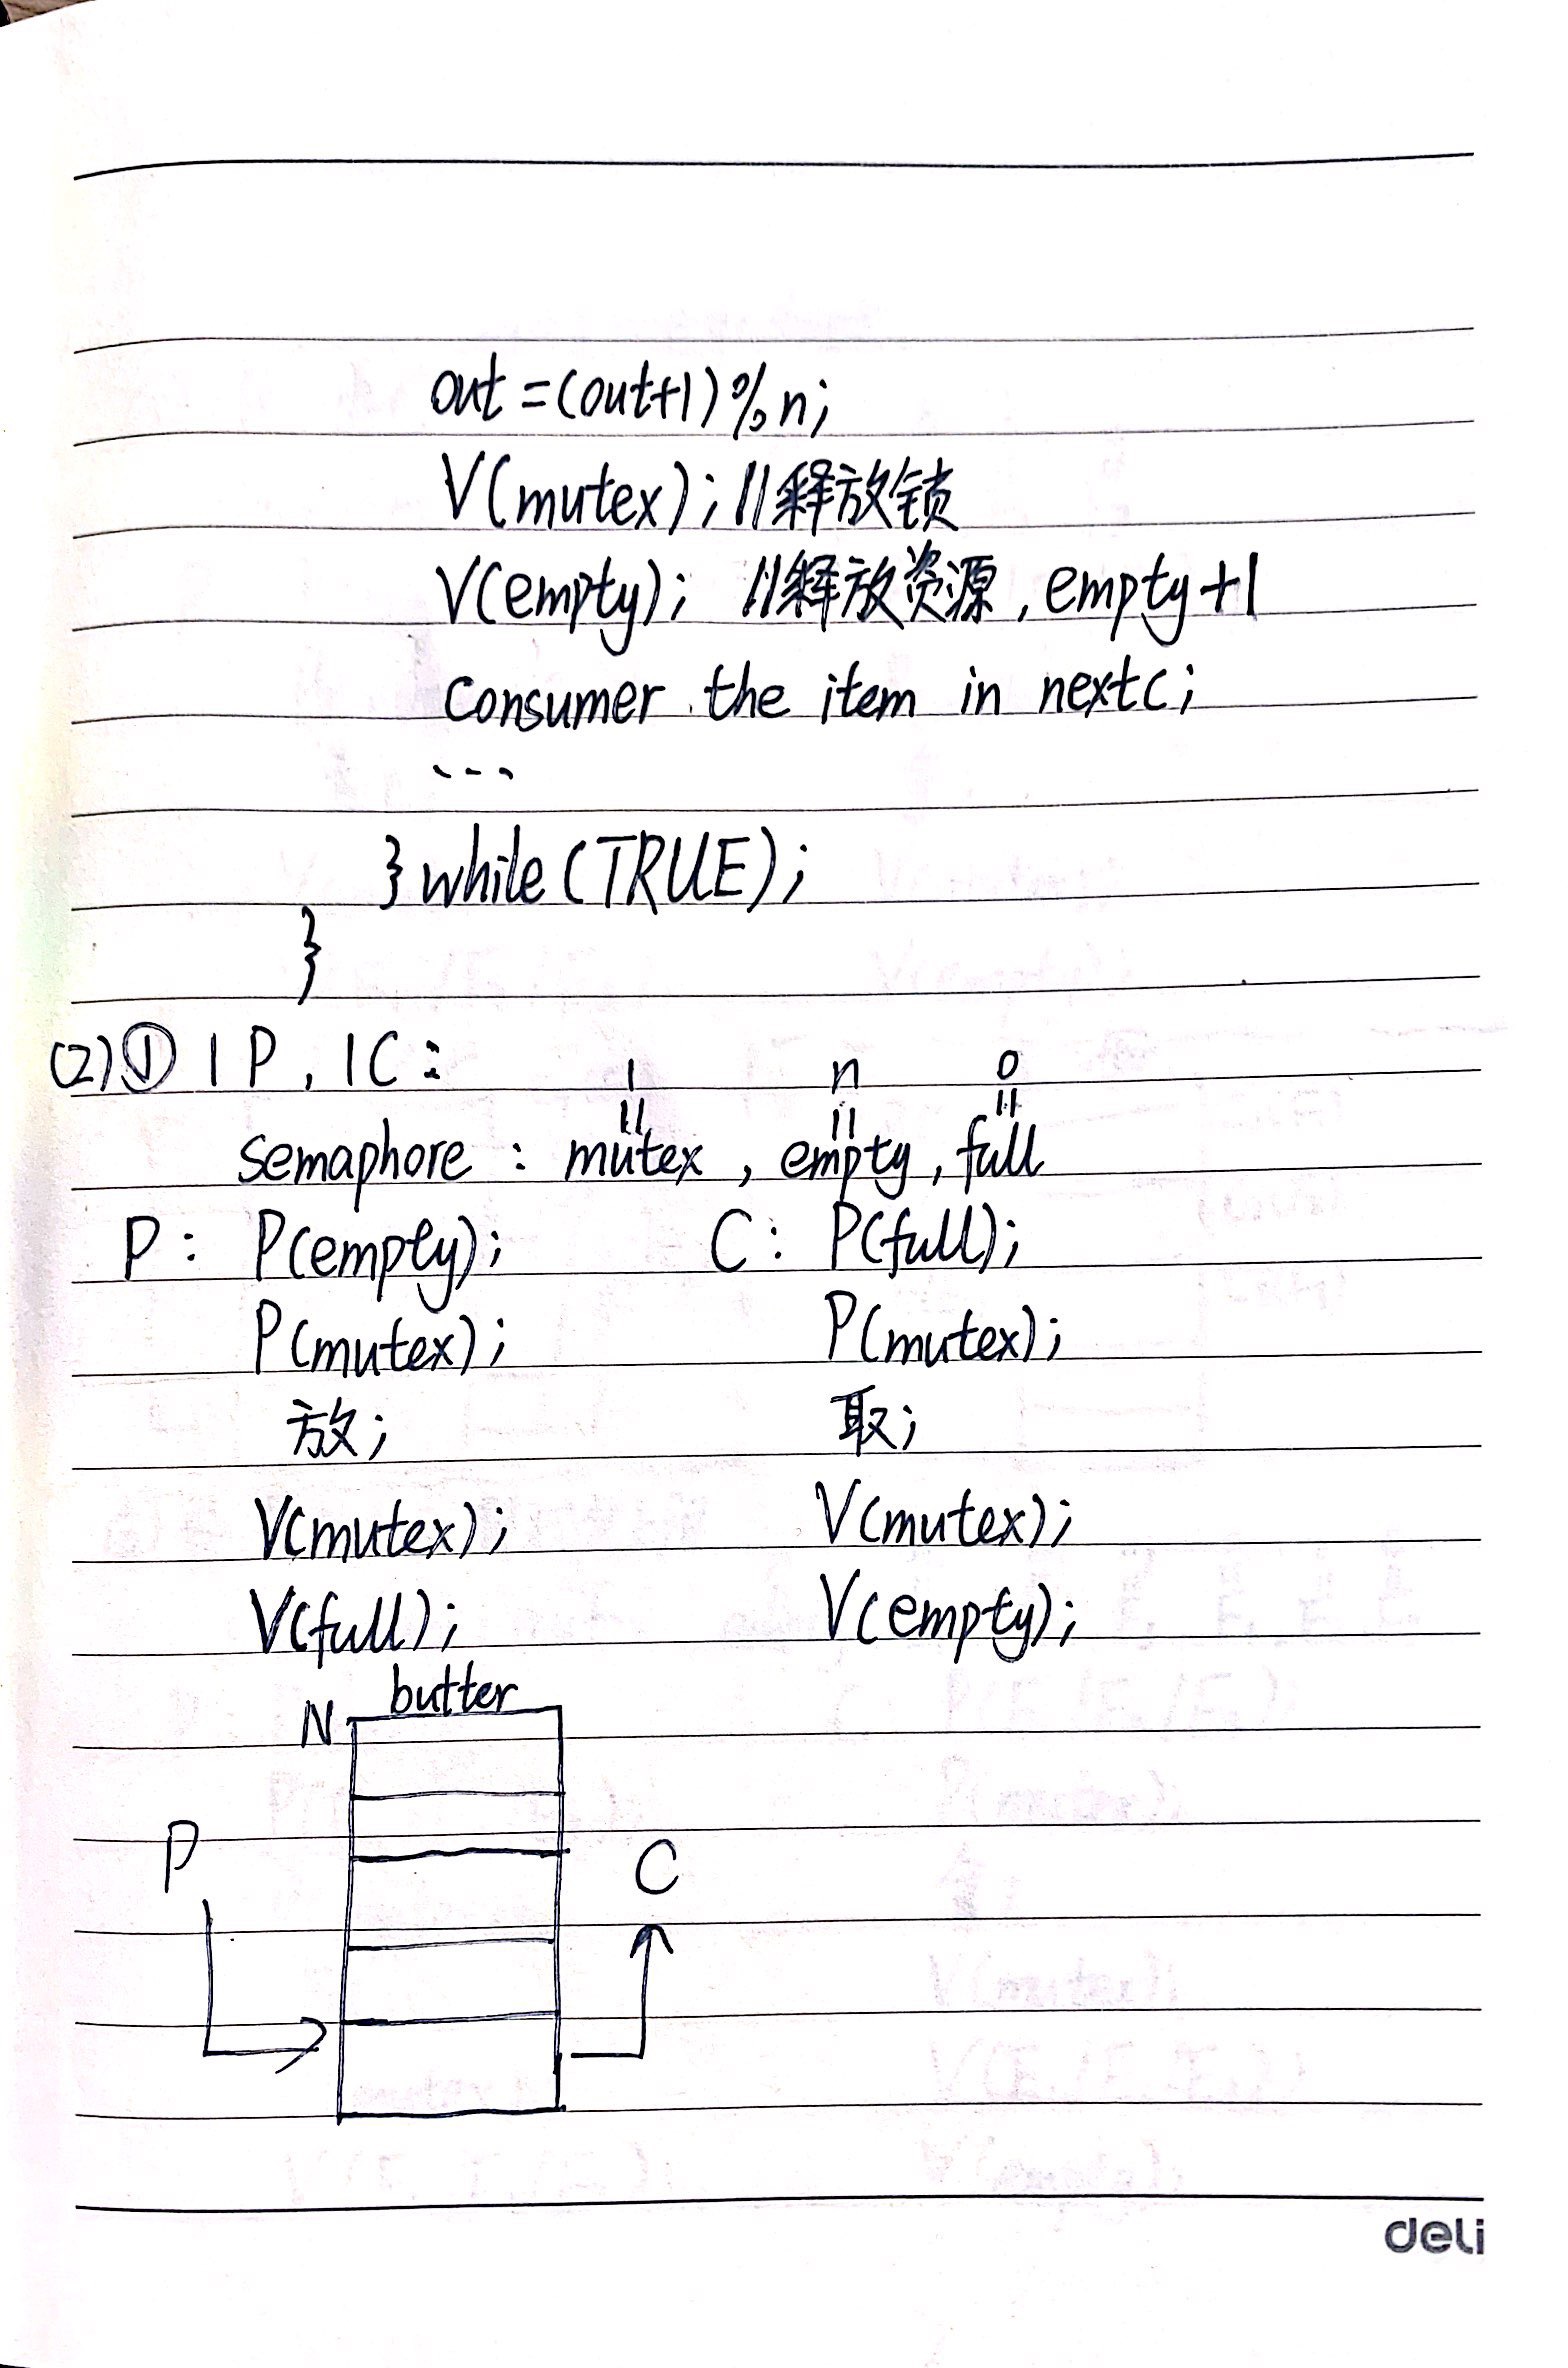 out=(out+1)%n;
V(mutex);//释放锁
V(empty); //释放资源,empty+1
consumer the item in nextc;
...
}while(TRUE);
}
(2)① 1P,1C:
1 n 0
|| || ||
semaphore: mutex, empty, full
P: P(empty); C: P(full);
P(mutex); P(mutex);
放; 取;
V(mutex); V(mutex);
V(full); V(empty);
N butter
P C
deli